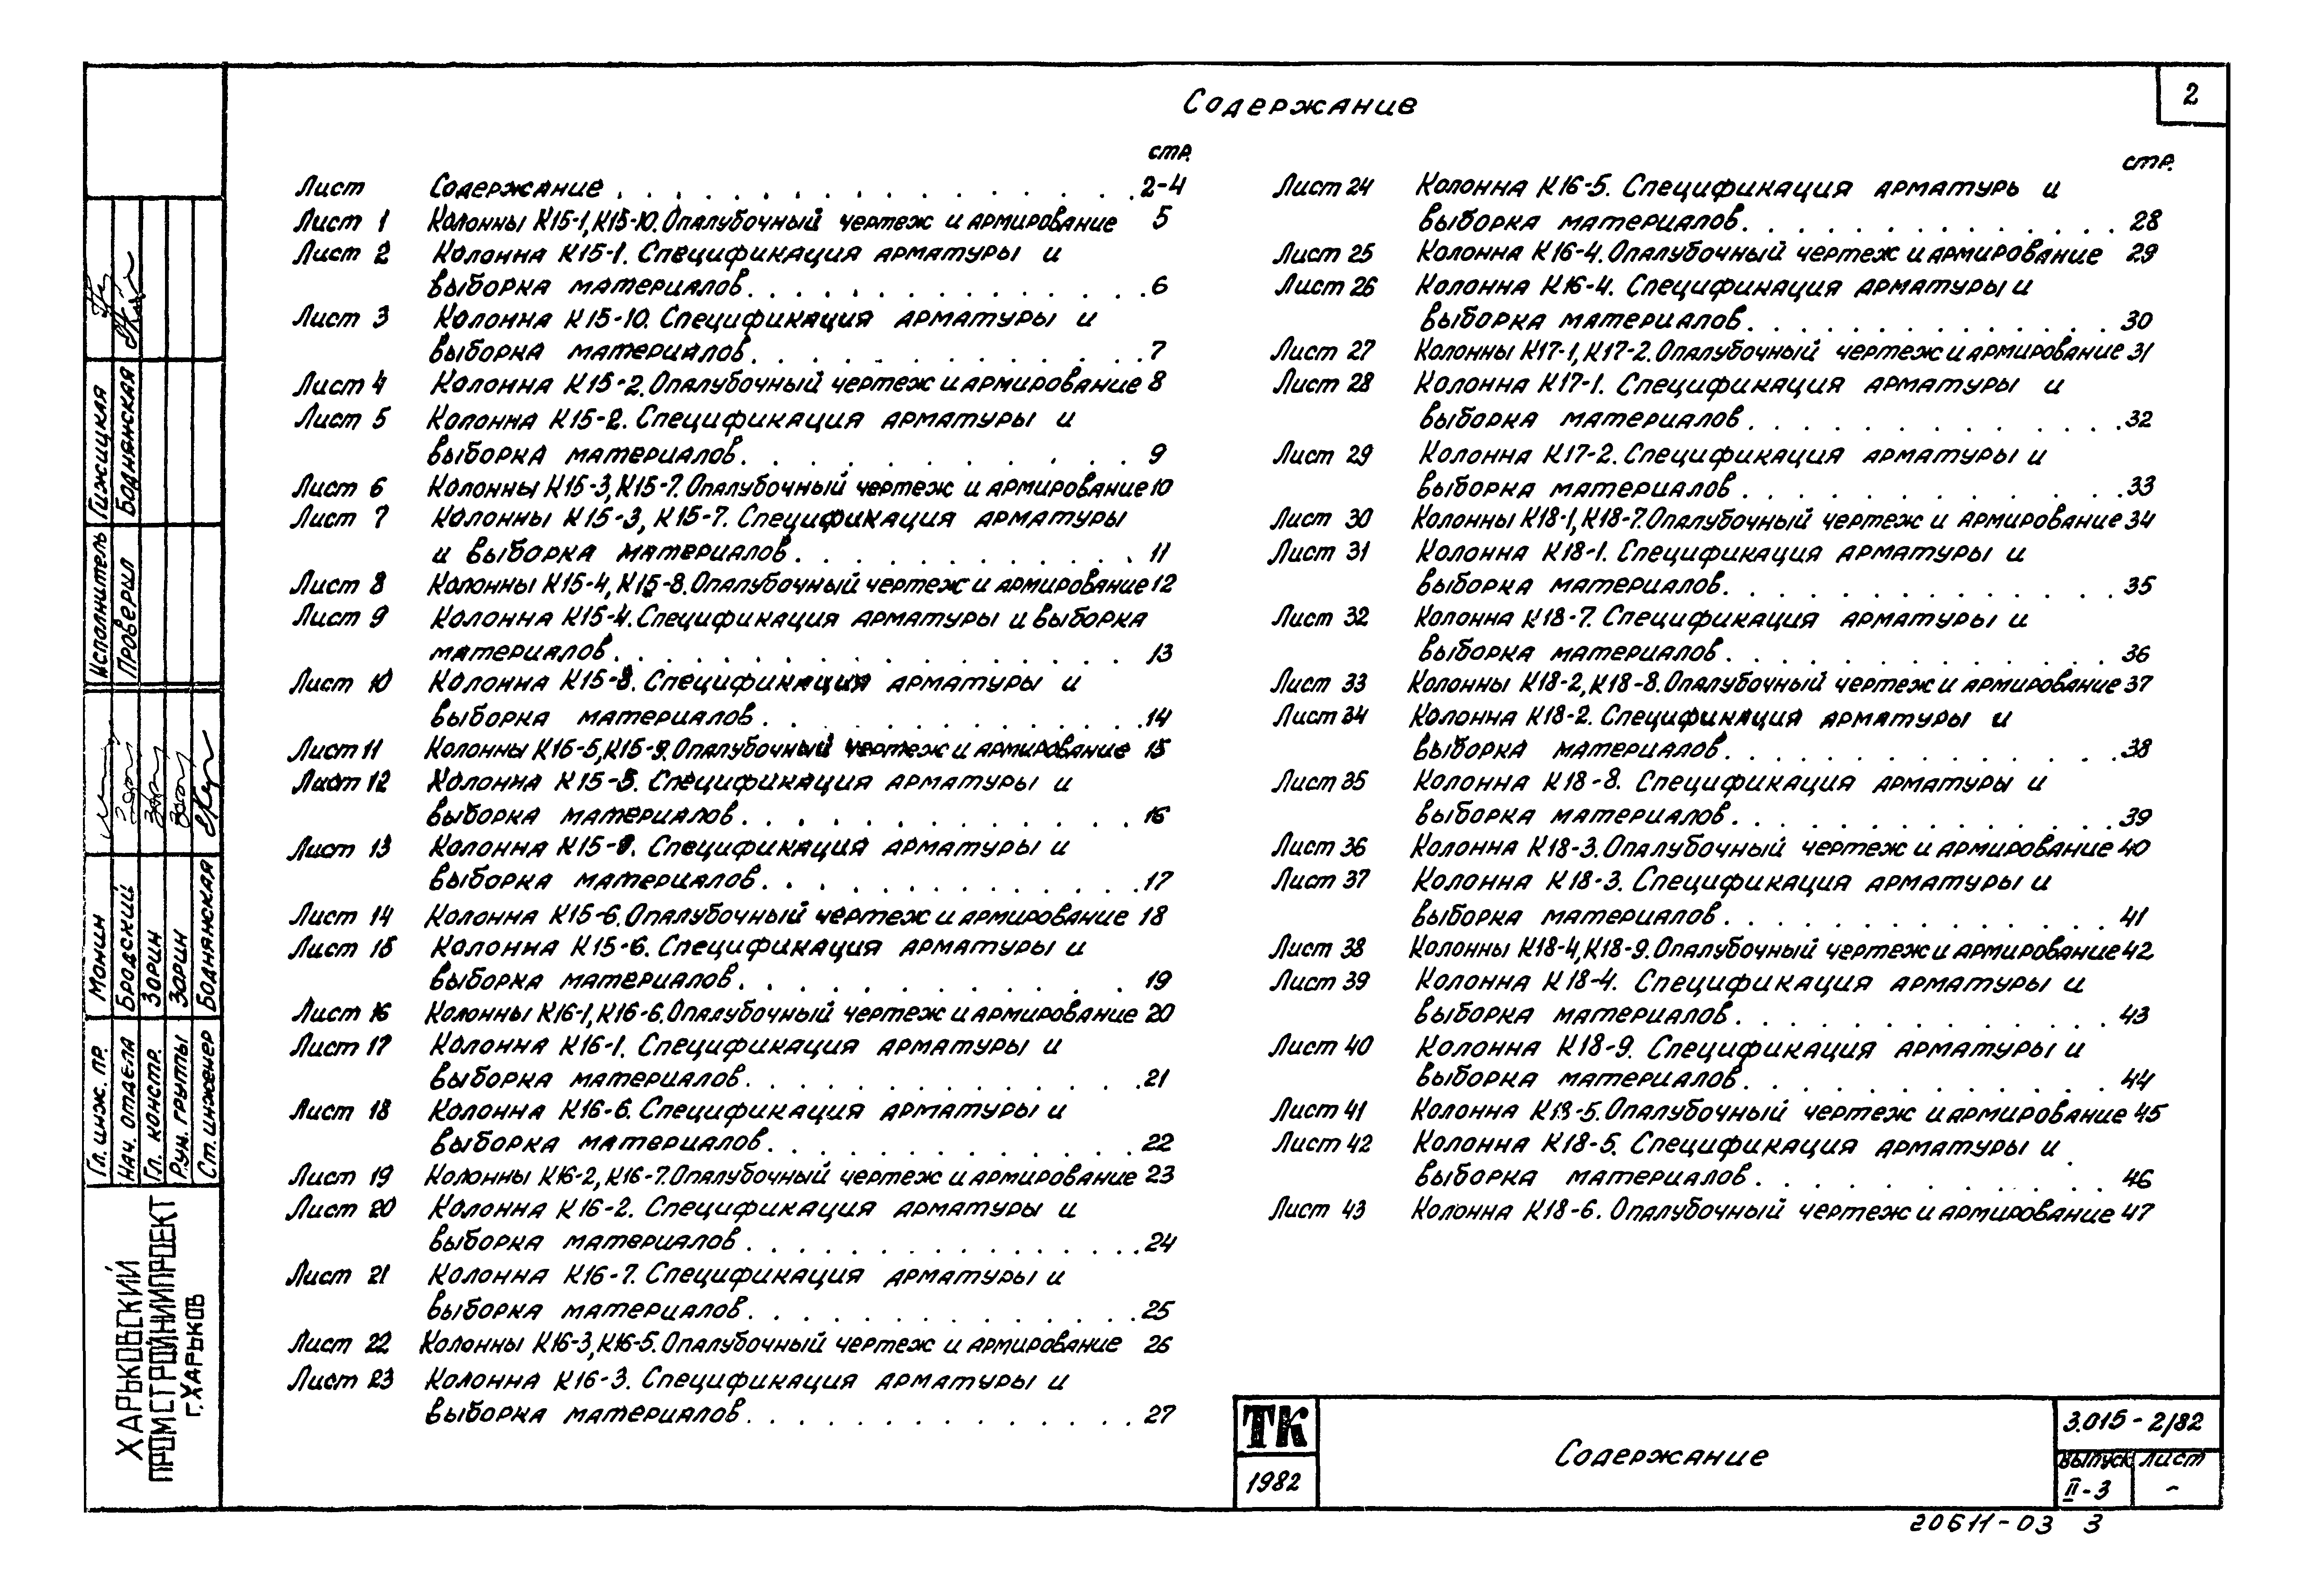 Содержание
2
стр.
Лист Содержание 2-4
Лист 1 Колонны К15-1,К15-10.Опалубочный чертеж и армирование 5
Лист 2 Колонна К15-1. Спецификация арматуры и
выборка материалов 6
Лист 3 Колонна К15-10. Спецификация арматуры и
выборка материалов 7
Лист 4 Колонна К15-2.Опалубочный чертеж и армирование 8
Лист 5 Колонна К15-2. Спецификация арматуры и
выборка материалов 9
Лист 6 Колонны К15-3,К15-7.Опалубочный чертеж и армирование 10
Лист 7 Колонны К15-3, К15-7. Спецификация арматуры
и выборка материалов 11
Лист 8 Колонны К15-4,К15-8.Опалубочный чертеж и армирование 12
Лист 9 Колонна К15-4.Спецификация арматуры и выборка
материалов 13
Лист 10 Колонна К15-8. Спецификация арматуры и
выборка материалов 14
Лист 11 Колонны К15-5,К15-9.Опалубочный чертеж и армирование 15
Лист 12 Колонна К15-5. Спецификация арматуры и
выборка материалов 16
Лист 13 Колонна К15-9. Спецификация арматуры и
выборка материалов 17
Лист 14 Колонна К15-6.Опалубочный чертеж и армирование 18
Лист 15 Колонна К15-6. Спецификация арматуры и
выборка материалов 19
Лист 16 Колонны К16-1,К16-6.Опалубочный чертеж и армирование 20
Лист 17 Колонна К16-1. Спецификация арматуры и
выборка материалов 21
Лист 18 Колонна К16-6. Спецификация арматуры и
выборка материалов 22
Лист 19 Колонны К16-2,К16-7.Опалубочный чертеж и армирование 23
Лист 20 Колонна К16-2. Спецификация арматуры и
выборка материалов 24
Лист 21 Колонна К16-7. Спецификация арматуры и
выборка материалов 25
Лист 22 Колонны К16-3,К16-5.Опалубочный чертеж и армирование 26
Лист 23 Колонна К16-3. Спецификация арматуры и
выборка материалов 27
стр.
Лист 24 Колонна К16-5. Спецификация арматуры и
выборка материалов 28
Лист 25 Колонна К16-4.Опалубочный чертеж и армирование 29
Лист 26 Колонна К16-4. Спецификация арматуры и
выборка материалов 30
Лист 27 Колонны К17-1,К17-2.Опалубочный чертеж и армирование 31
Лист 28 Колонна К17-1. Спецификация арматуры и
выборка материалов 32
Лист 29 Колонна К17-2. Спецификация арматуры и
выборка материалов 33
Лист 30 Колонны К18-1,К18-7.Опалубочный чертеж и армирование 34
Лист 31 Колонна К18-1. Спецификация арматуры и
выборка материалов 35
Лист 32 Колонна К18-7. Спецификация арматуры и
выборка материалов 36
Лист 33 Колонны К18-2,К18-8.Опалубочный чертеж и армирование 37
Лист 34 Колонна К18-2. Спецификация арматуры и
выборка материалов 38
Лист 35 Колонна К18-8. Спецификация арматуры и
выборка материалов 39
Лист 36 Колонна К18-3.Опалубочный чертеж и армирование 40
Лист 37 Колонна К18-3. Спецификация арматуры и
выборка материалов 41
Лист 38 Колонны К18-4,К18-9.Опалубочный чертеж и армирование 42
Лист 39 Колонна К18-4. Спецификация арматуры и
выборка материалов 43
Лист 40 Колонна К18-9. Спецификация арматуры и
выборка материалов 44
Лист 41 Колонна К18-5.Опалубочный чертеж и армирование 45
Лист 42 Колонна К18-5. Спецификация арматуры и
выборка материалов 46
Лист 43 Колонна К18-6. Опалубочный чертеж и армирование 47
Исполнитель Гижицкая
Проверил Боднянская
Гл. инж. пр. Монин
Нач. отдела Бродский
Гл. констр. Зорин
Рук. группы Зорин
Ст. инженер Боднянская
ХАРЬКОВСКИЙ
ПРОМСТРОЙНИИПРОЕКТ
г.ХАРЬКОВ
ТК
1982
Содержание
3.015-2/82
выпуск лист
II-3 -
20611-03 3